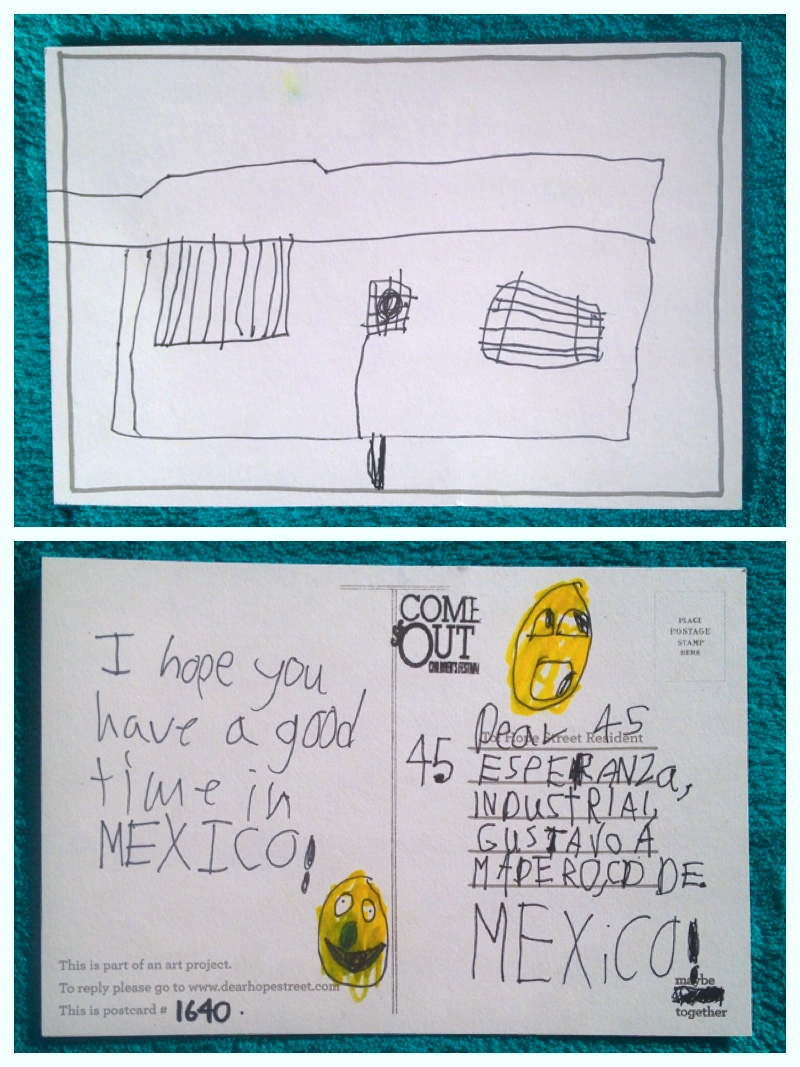 I hope you
have a good
time in
MEXICO!
This is part of an art project.
To reply please go to www.dearhopestreet.com
This is postcard # 1640.
COME
OUT
CHILDREN'S FESTIVAL
PLACE
POSTAGE
STAMP
HERE
To: Hope Street Resident
Dear 45
45 ESPERANZa,
INDUSTRIAL,
GUSTAVO A
MADERO,CD DE
MEXiCO!
maybe
together